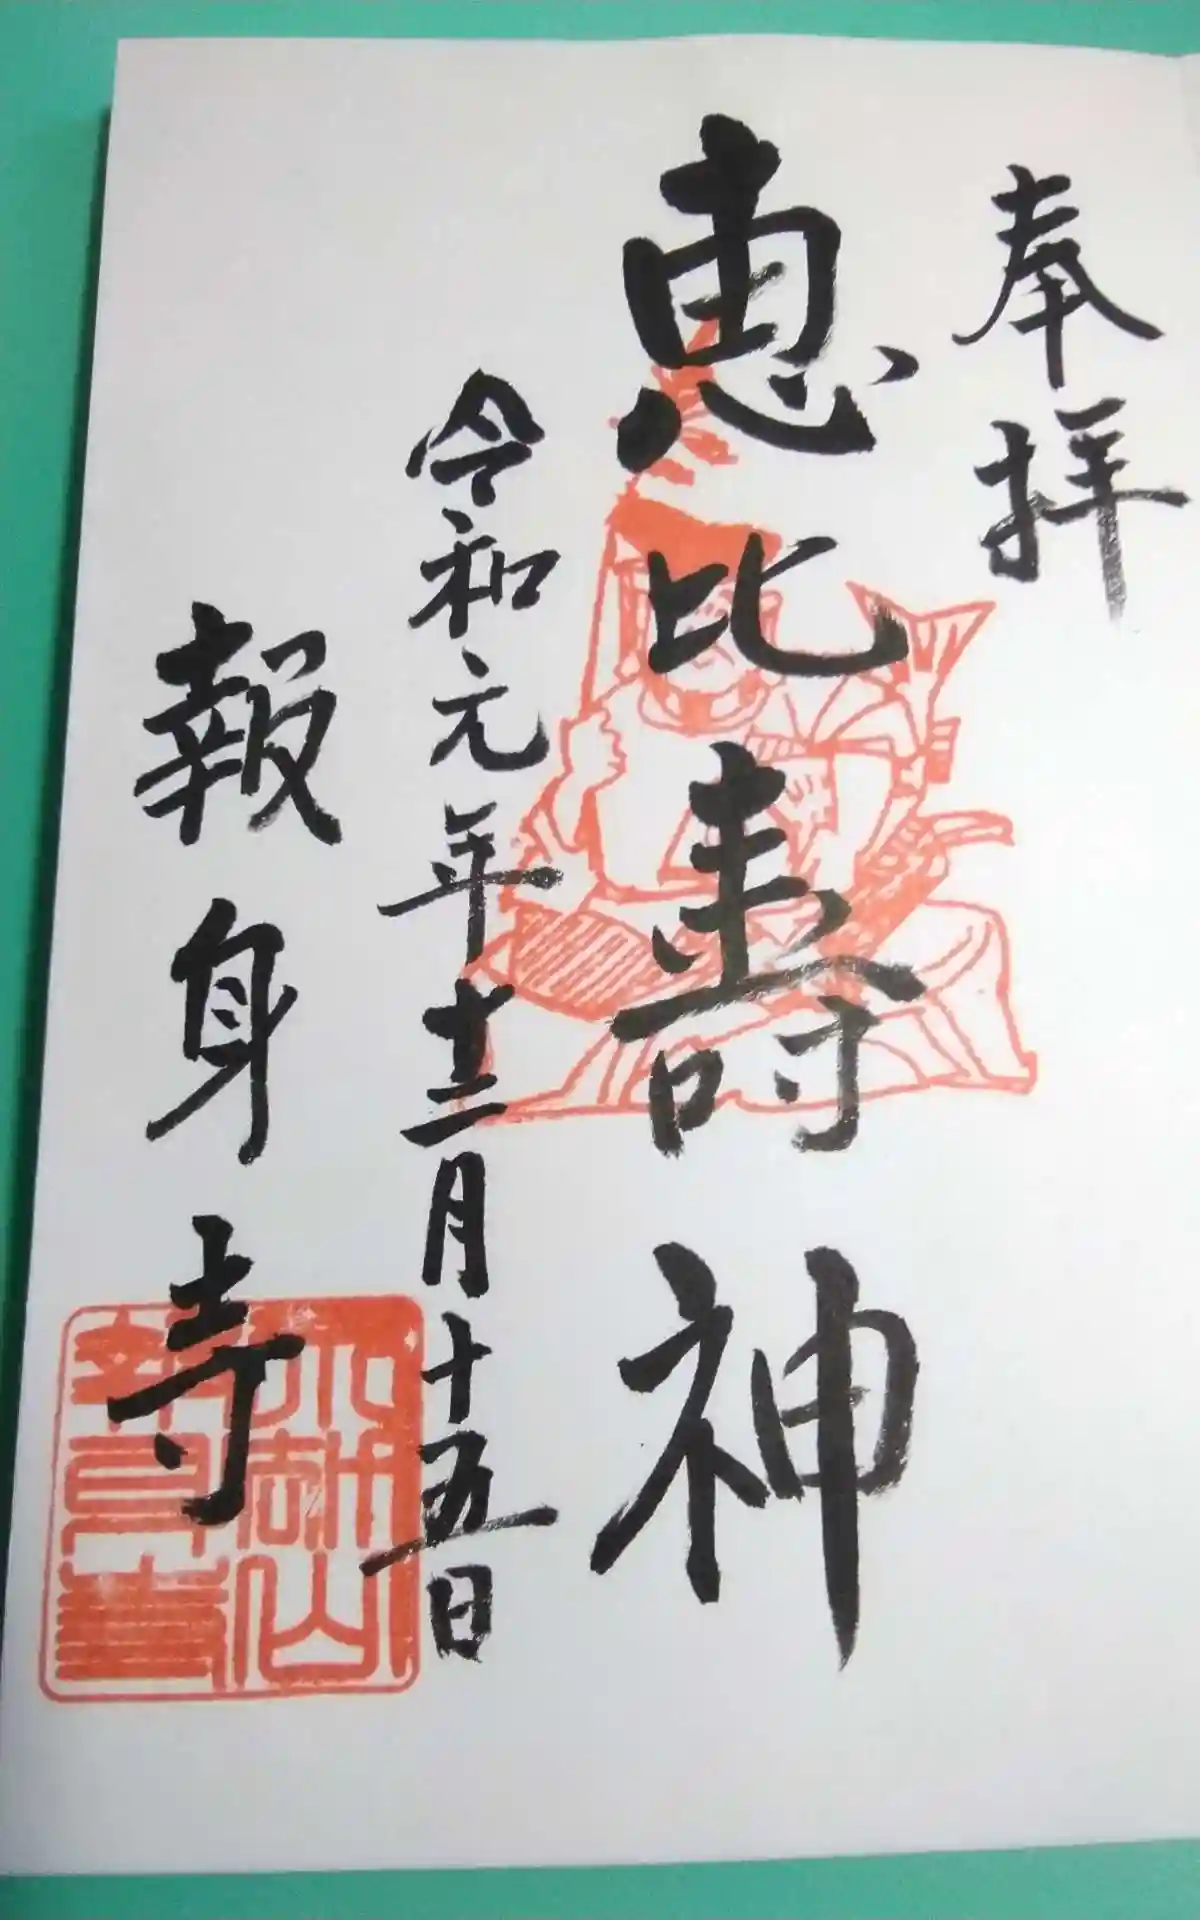 奉拝
恵比寿神
令和元年十二月十五日
報身寺